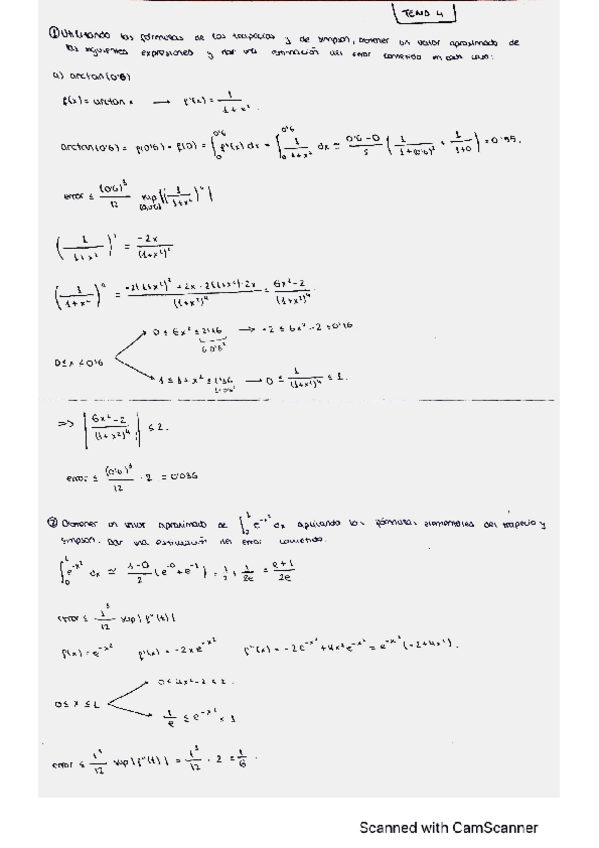 TEMA 4
① Utilizando las fórmulas de los trapecios y de Simpson, obtener un valor aproximado de
las siguientes expresiones y dar una estimación del error cometido en cada caso:
a) arctan(0'6)
f(x) = arctan x → f'(x) = 1/(1+x²)
arctan(0'6) = f(0'6) - f(0) = ∫₀^0'6 f'(x) dx = ∫₀^0'6 1/(1+x²) dx ≃ (0'6-0)/2 (1/(1+(0'6)²) + 1/(1+0)) = 0'55.
error ≤ (0'6)³/12 sup |(1/(1+x²))''|
(1/(1+x²))' = -2x/(1+x²)²
(1/(1+x²))'' = (-2(1+x²)² + 2x·2(1+x²)·2x)/(1+x²)⁴ = (6x²-2)/(1+x²)⁴
0 ≤ 6x² ≤ 2'16 → -2 ≤ 6x²-2 ≤ 0'16
0 ≤ x ≤ 0'6
1 ≤ 1+x² ≤ 1'36 → 0 ≤ 1/(1+x²)⁴ ≤ 1.
=> |(6x²-2)/(1+x²)⁴| ≤ 2.
error ≤ (0'6)³/12 · 2 = 0'036
② Obtener un valor aproximado de e^-x² dx aplicando las fórmulas elementales del trapecio y
Simpson. Dar una estimación del error cometido.
∫₀¹ e^-x² dx ≃ (1-0)/2 (e^-0 + e^-1) = 1/2 + 1/2e = (e+1)/2e
error ≤ 1³/12 sup |f''(t)|
f(x) = e^-x² f'(x) = -2xe^-x² f''(x) = -2e^-x² + 4x²e^-x² = e^-x² (-2+4x²).
0 ≤ 4x²-2 ≤ 2.
0 ≤ x ≤ 1
1/e ≤ e^-x² ≤ 1
error ≤ 1³/12 sup |f''(t)| = 1³/12 · 2 = 1/6.
Scanned with CamScanner